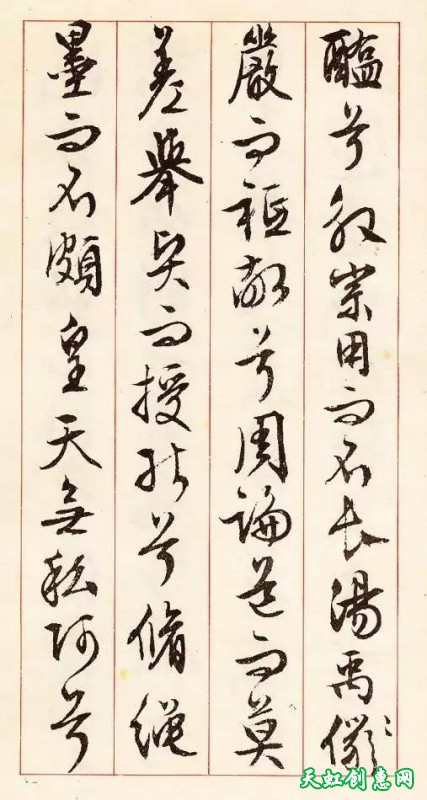 醢兮殷宗用而不長湯禹儼
嚴而祗敬兮周論道而莫
差舉賢而授能兮脩繩
墨而不頗皇天無私阿兮
天虹创惠网